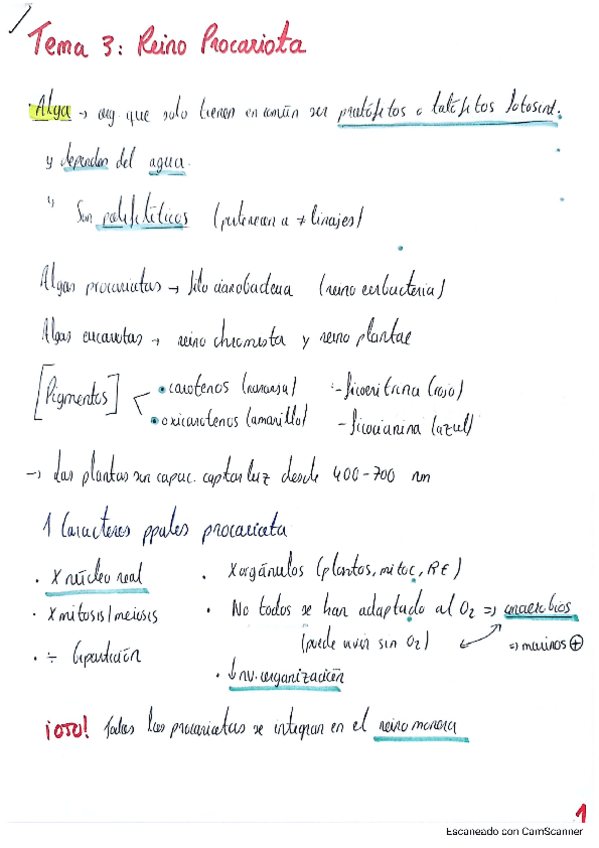 Tema 3: Reino Procariota
·Alga → org. que solo tienen en común ser protófitos o talófitos fotosint.
y dependen del agua.
↳ Son polifiléticos (pertenecen a ≠ linajes)
Algas procariotas → filo cianobacteria (reino eubacteria)
Algas eucariotas → reino chromista y reino plantae
[Pigmentos] • carotenos (naranja) - ficoeritrina (rojo)
• oxicarotenos (amarillo) - ficocianina (azul)
→ Las plantas son capac. captar luz desde 400-700 nm
1 Caracteres ppales procariota
· X núcleo real · X orgánulos (plastos, mitoc, RE)
· X mitosis/meiosis · No todos se han adaptado al O₂ ⇒ anaerobios
· ÷ bipartición (puede vivir sin O₂) ⇒ marinos ⊕
· ↓ nv. organización
¡OJO! Todas las procariotas se integran en el reino monera
1
Escaneado con CamScanner